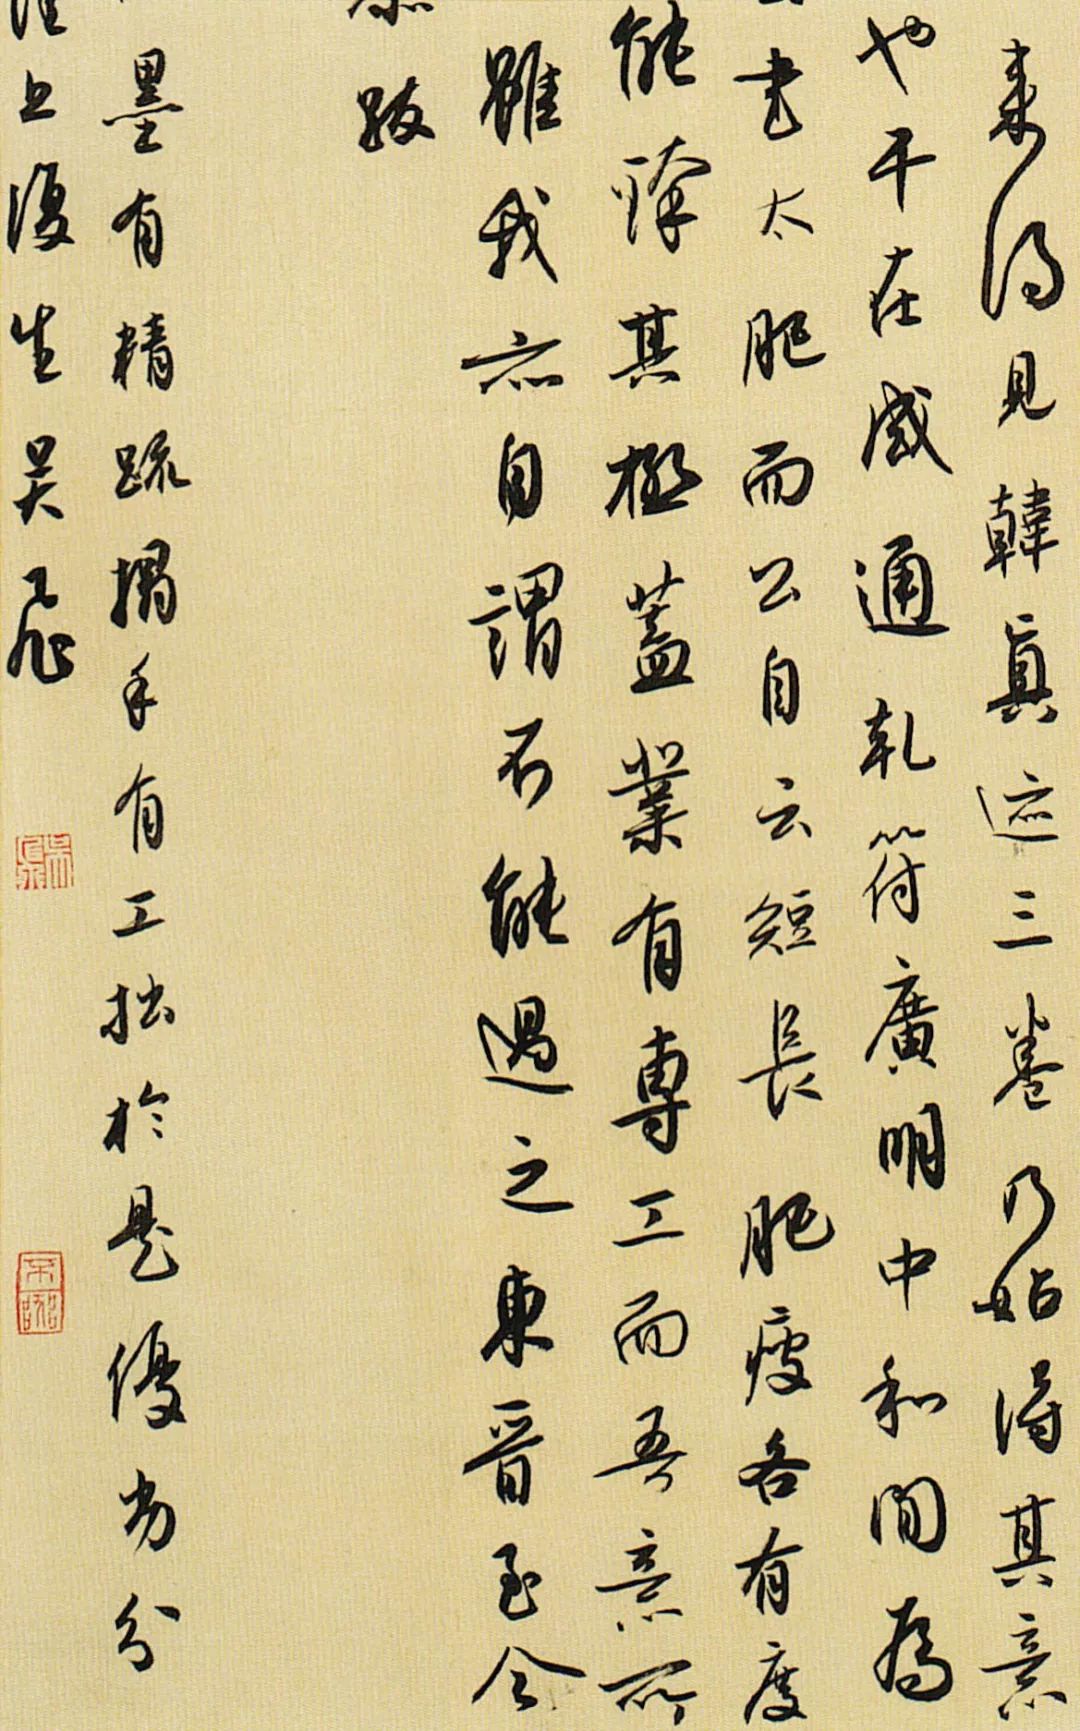 来得见韓真迹三卷乃始得其意
也干在咸通乾符廣明中和间為
書太肥而公自云短長肥瘦各有度
能臻其極蓋業有專工而吾意所
雖我亦自謂不能過之東晉至今
跋
墨有精疏搨手有工拙於是優劣分
上後生吴